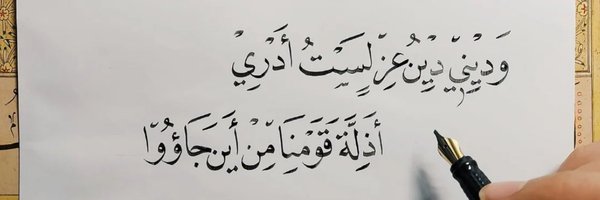 وَدِيْنِيْ دِيْنُ عِزٍّ لَسْتُ أَدْرِيْ
أَذِلَّةَ قَوْمِنَا مِنْ أَينَ جَاؤُوْا